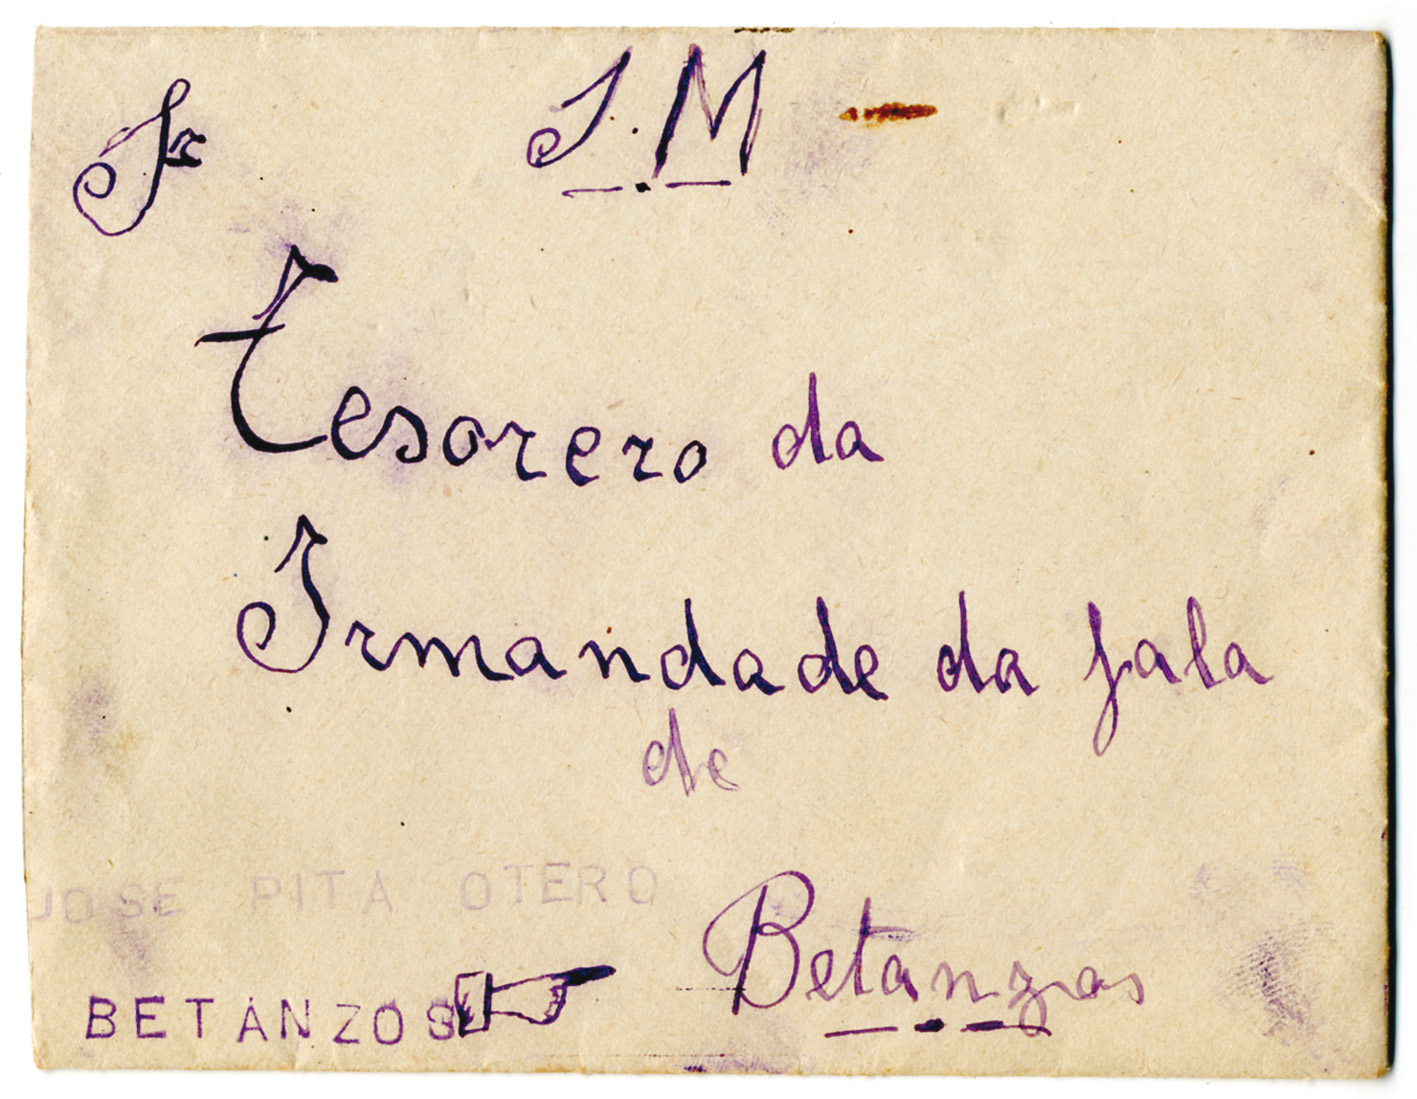 J. M
Sr
Tesorero da
Irmandade da fala
de
Betanzos
JOSE PITA OTERO
BETANZOS